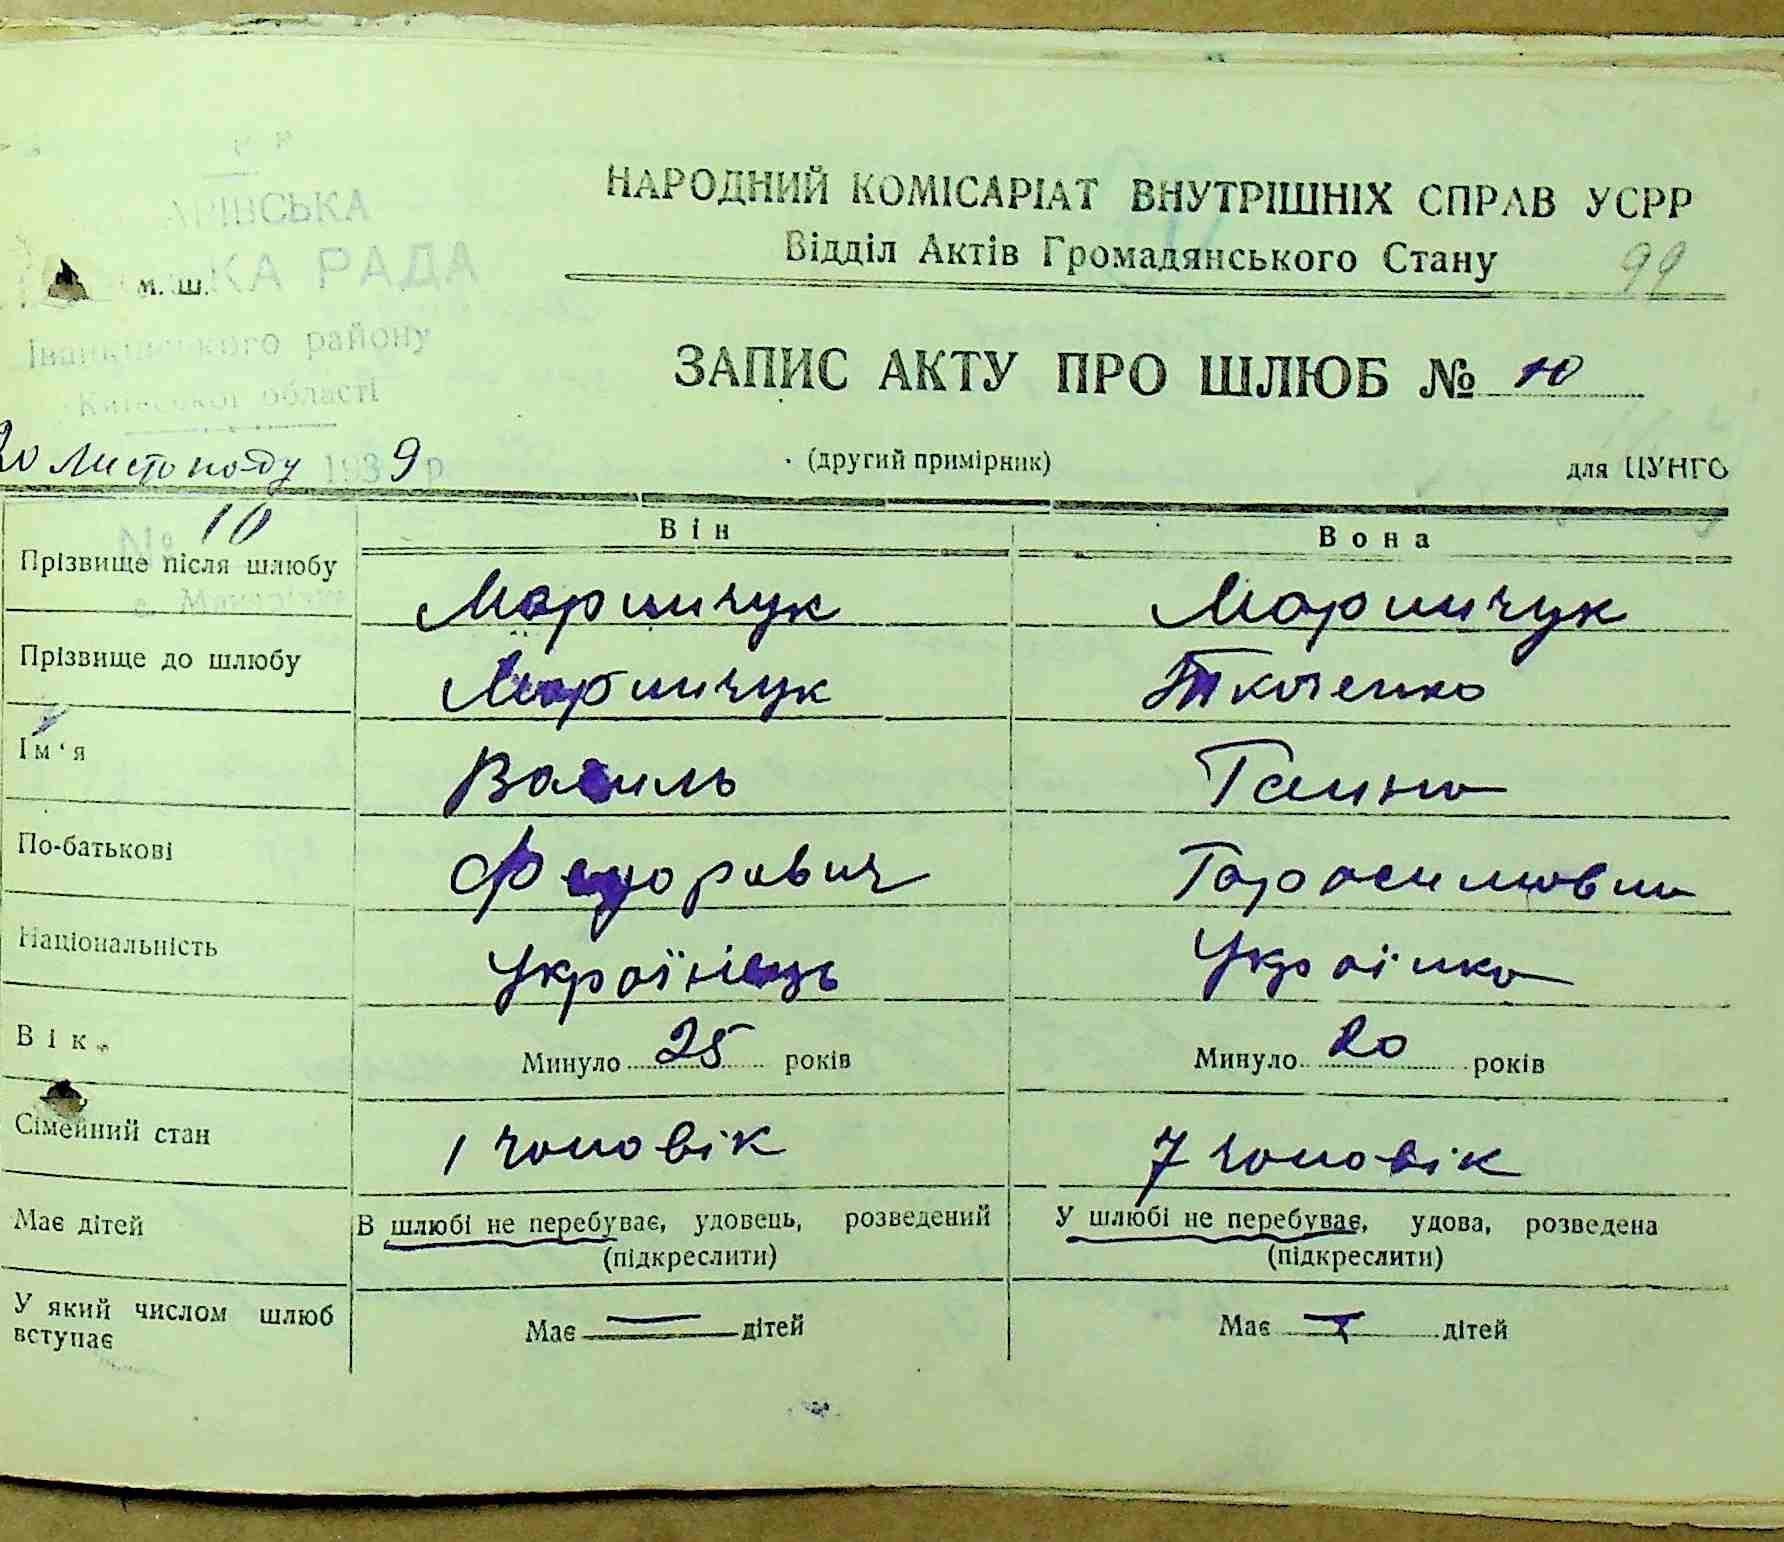 НАРОДНИЙ КОМІСАРІАТ ВНУТРІШНІХ СПРАВ УСРР
Відділ Актів Громадянського Стану
99
КА РАДА
м. ш.
Іванківського району
Київської області
ЗАПИС АКТУ ПРО ШЛЮБ № 10
20 Листопаду 1939 р
(другий примірник)
для ЦУНГО
№ 10
Він
Вона
Прізвище після шлюбу
Маримчук
Маримчук
Прізвище до шлюбу
Маримчук
Ткаченко
Ім'я
Василь
Ганна
По-батькові
Федорович
Тарасимовна
Національність
Українець
Українка
Вік
Минуло 25 років
Минуло 20 років
Сімейний стан
1 чоловік
7 чоловік
Має дітей
В шлюбі не перебуває, удовець, розведений
(підкреслити)
У шлюбі не перебуває, удова, розведена
(підкреслити)
У який числом шлюб
вступає
Має — дітей
Має — дітей